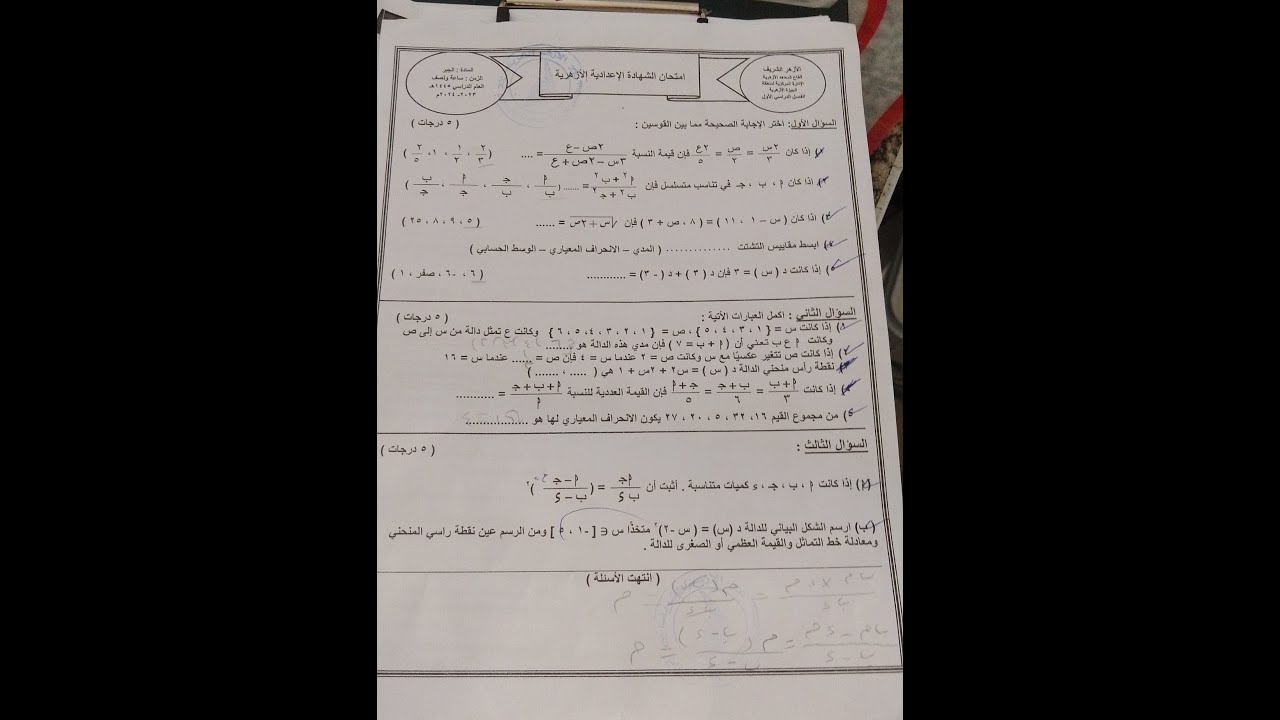 الأزهر الشريف
قطاع المعاهد الأزهرية
الإدارة المركزية لمنطقة
الجيزة الأزهرية
الفصل الدراسي الأول
امتحان الشهادة الإعدادية الأزهرية
المادة : الجبر
الزمن : ساعة ونصف
العام الدراسي ١٤٤٥هـ
٢٠٢٣-٢٠٢٤م
السؤال الأول: اختر الإجابة الصحيحة مما بين القوسين : ( ٥ درجات )
١) إذا كان ٢س/٣ = ص/٢ = ٢ع/٥ فإن قيمة النسبة (٢ص – ع)/(٣س – ٢ص + ع) = .... ( ٢/٣ ، ١/٢ ، ١ ، ٢/٥ )
٢) إذا كان م ، ب ، جـ في تناسب متسلسل فإن (م٢ + ب٢)/(ب٢ + جـ٢) = ...... ( م/ب ، جـ/ب ، م/جـ ، ب/جـ )
٣) اذا كان ( س – ١ ، ١١ ) = ( ٨ ، ص + ٣ ) فإن √(س + ٢ص) = ...... ( ٥ ، ٩ ، ٨ ، ٢٥ )
٤) ابسط مقاييس التشتت .............. ( المدي – الانحراف المعياري – الوسط الحسابي )
٥) إذا كانت د ( س ) = ٣ فإن د ( ٣ ) + د ( - ٣) = ............ ( ٦ ، -٦ ، صفر ، ١ )
السؤال الثاني : اكمل العبارات الأتية : ( ٥ درجات )
١) إذا كانت س = { ١ ، ٣ ، ٤ ، ٥ } ، ص = { ١ ، ٢ ، ٣ ، ٤ ، ٥ ، ٦ } وكانت ع تمثل دالة من س إلى ص
وكانت م ع ب تعني أن ( م + ب = ٧ ) فإن مدي هذه الدالة هو ........
٢) إذا كانت ص تتغير عكسيًا مع س وكانت ص = ٢ عندما س = ٤ فإن ص = ...... عندما س = ١٦
نقطة رأس منحني الدالة د ( س ) = س٢ + ٢س + ١ هي ( ..... ، ....... )
إذا كانت (م+ب)/٣ = (ب+جـ)/٦ = (جـ+م)/٥ فإن القيمة العددية للنسبة (م+ب+جـ)/م = ...........
من مجموع القيم ١٦، ٣٢ ، ٥ ، ٢٠ ، ٢٧ يكون الانحراف المعياري لها هو ..................
السؤال الثالث : ( ٥ درجات )
(م) إذا كانت م ، ب ، جـ ، ء كميات متناسبة . أثبت أن م جـ/ب ء = ((م – جـ)/(ب – ء))٢
(ب) ارسم الشكل البياني للدالة د (س) = ( س -٢)٢ متخذًا س ∈ [ -١ ، ٥ ] ومن الرسم عين نقطة راسي المنحني
ومعادلة خط التماثل والقيمة العظمي أو الصغرى للدالة .
( انتهت الأسئلة )